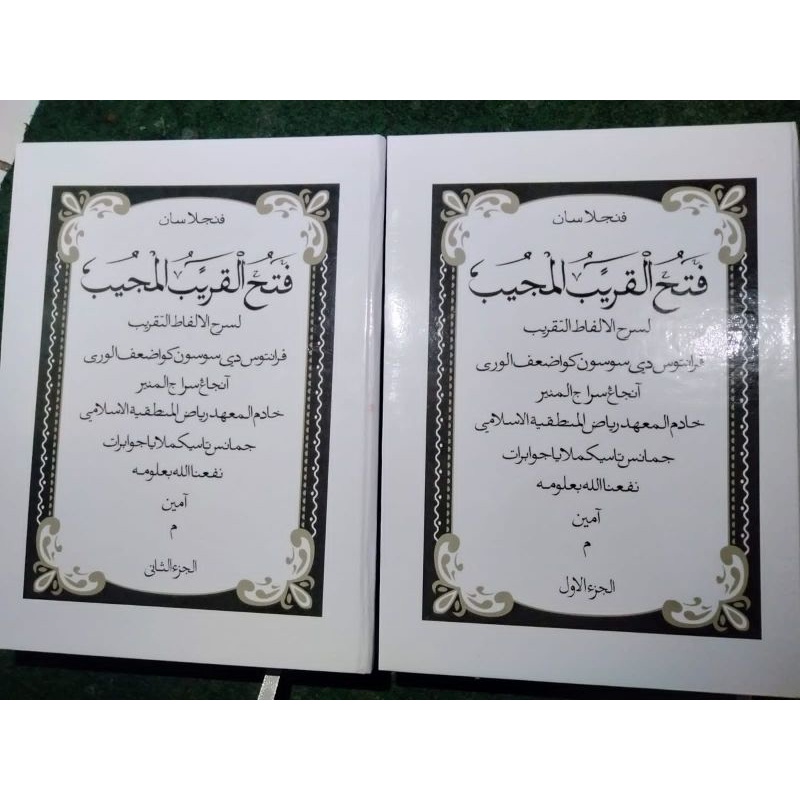 فنجلاسان
فَتْحُ الْقَرِيْبُ الْمُجِيْبُ
لسرح الالفاط التقريب
فرانتوس دي سوسون كو اضعف الورى
آنجاغ سراج المنير
خادم المعهد رياض المنطقية الاسلامي
جمانس تاسيكملايا جوا برات
نفعنا الله بعلومه
آمين
م
الجزء الاول
فنجلاسان
فَتْحُ الْقَرِيْبُ الْمُجِيْبُ
لسرح الالفاط التقريب
فرانتوس دي سوسون كو اضعف الورى
آنجاغ سراج المنير
خادم المعهد رياض المنطقية الاسلامي
جمانس تاسيكملايا جوا برات
نفعنا الله بعلومه
آمين
م
الجزء الثانى